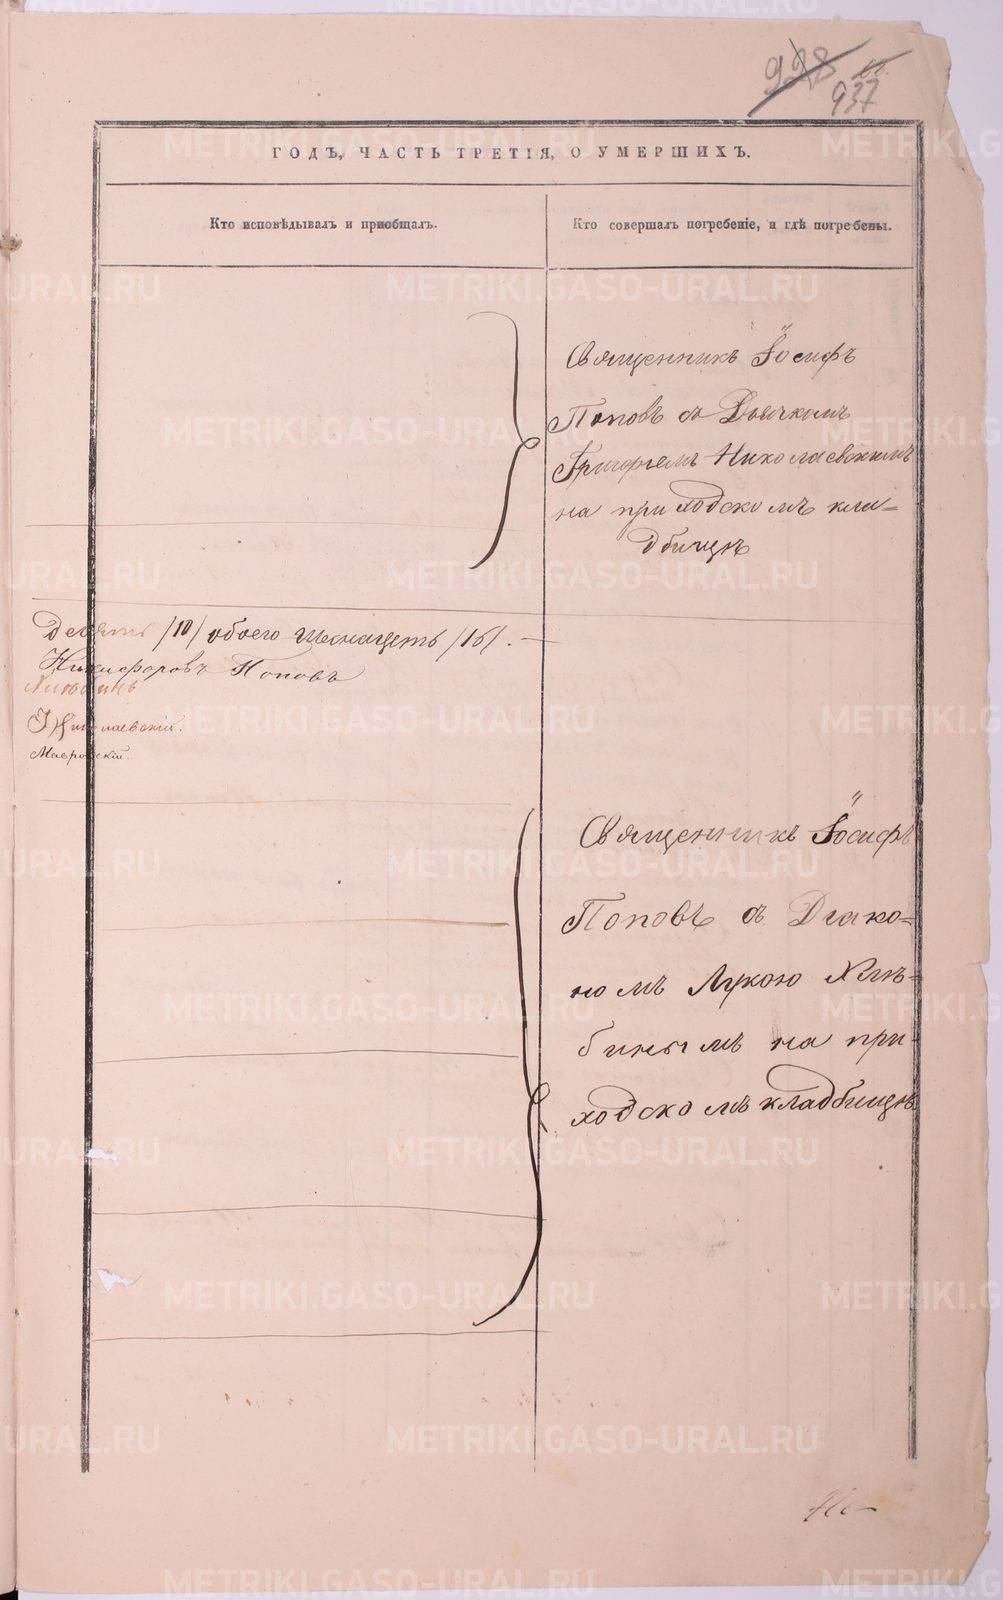 928
937
ГОДЪ, ЧАСТЬ ТРЕТІЯ, О УМЕРШИХЪ.
Кто исповѣдывалъ и приобщалъ.
Кто совершалъ погребеніе, и гдѣ погребены.
Священникъ Іосифъ
Поповъ съ Дьячкомъ
Григорьемъ Николаевскимъ
на приходскомъ кла=
дбищѣ
Десять /10/ обоего шеснадцеть /16/.
Никифоровъ Поповъ
Николаевскій.
Священникъ Іосифъ
Поповъ съ Діако=
номъ Лукою Хлѣ=
бинымъ на при-
ходскомъ кладбищѣ
METRIKI.GASO-URAL.RU